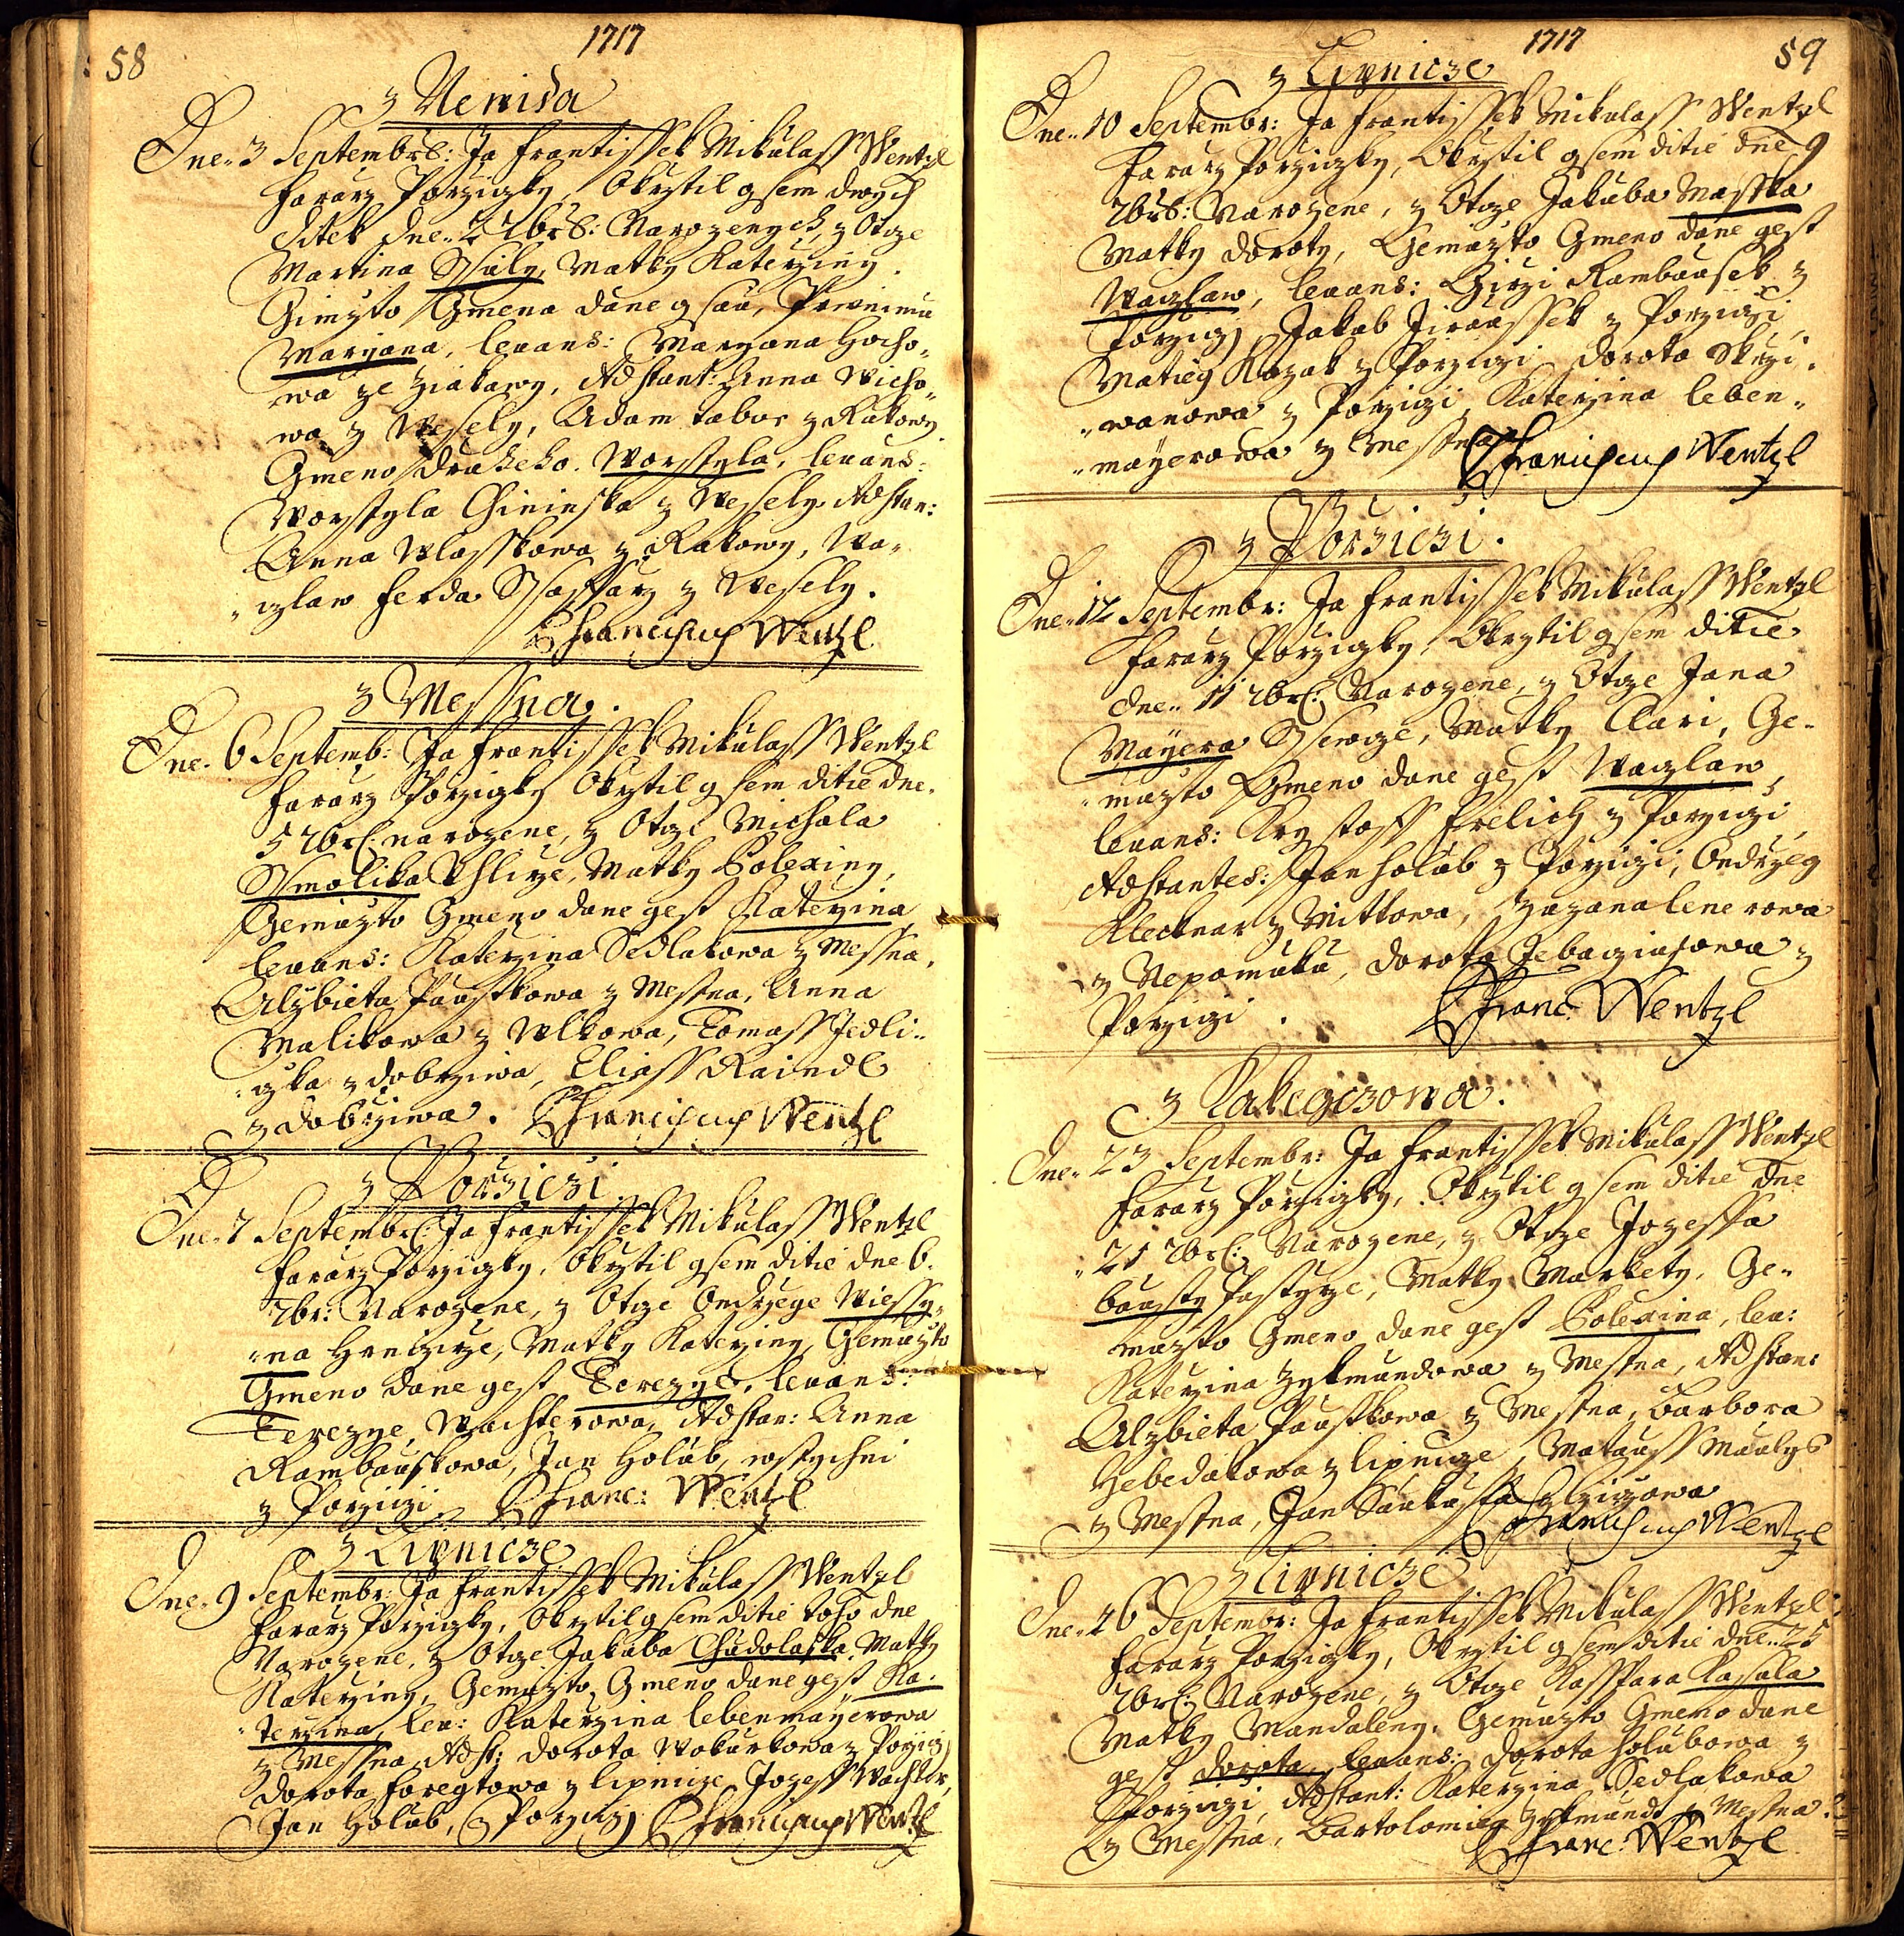 58
1717
z Newida
Dne 3 Septembris: Ja Frantissek Mikulass Wentzl
Fararz Porziczky, Okrztil gsem dwogich
ditek dne 2 7bris: Narozenych, z Otcze
Martina Skaly, Matky Katerziny.
Gimzto Gmena dane gsau, Prwnimu
Maryana, levans: Maryana Hocho-
wa ze Ziakawy, Adstant: Anna Wicho-
wa z Wesely, Adam tabor z Rakowy
Gmeno druheho. Worssyla, levans:
Worssyla Chininska z Wessely, Adstan:
Anna Wlasskowa z Rakowy, Wa-
czlaw Ferda Ssaffarz z Wesely.
Franciscus Wentzl
z Messna.
Dne 6 Septemb: Ja Frantissek Mikulass Wentzl
Fararz Porziczky Okrztil gsem ditie dne
5 7bris: narozene, z Otcze Michala
Smolika Uhlirze, Matky Polexiny,
Gemuzto Gmeno dane gest Katerzina
levans: Katerzina Sedlakowa z Messna.
Alzbieta Pausskowa z Messna, Anna
Malikowa z Wlkowa, Tomass Jedli-
czka z dobrziwa, Eliass Raindl
z dobrziwa. Franciscus Wentzl
z Porziczi
Dne 7 Septembris: Ja Frantissek Mikulass Wentzl
Fararz Porziczky, Okrztil gsem ditie dne 6.
7br: Narozene, z Otcze Ondrzege Wiessy-
na Hrncirze, Matky Katerziny, Gemuzto
Gmeno dane gest Terezye, levans:
Terezye Wachterowa, Adstan: Anna
Rambauskowa, Jan Holub, wssychni
z Porziczi Franc: Wentzl
z Lipnicze
Dne 9 Septembr: Ja Frantissek Mikulass Wentzl
Fararz Porziczky, Okrztil gsem ditie toho dne
Narozene, z Otcze Jakuba Chudolaska, Matky
Katerziny, Gemuzto Gmeno dane gest Ka-
terzina, lev: Katerzina lebenmayerowa
z Messna, Adst: dorota Wokurkowa z Porzicz,
dorota Foregtowa z lipnicze, Jozeff Wachter,
Jan Holub, z Porzicz, Franciscus Wentzl
1717
59
z Lipnicze
Dne 10 Septembr: Ja Frantissek Mikulass Wentzl
Fararz Porziczky, Okrztil gsem ditie dne 9
7bris: Narozene, z Otcze Jakuba Masska
Matky doroty, Gemuzto Gmeno dane gest
Waczlaw, levans: Girzi Rambausek z
Porzicz, Jakub Jirausek z Porziczi,
Matieg Kozak z Porziczi, dorota Skrzi-
wanowa z Porziczi, Katerzina leben-
mayerowa z Messna Franciscus Wentzl
z Porziczi.
Dne 12 Septembr: Ja Frantissek Mikulass Wentzl
Fararz Porziczky, Okrztil gsem ditie
dne 11 7bris: Narozene, z Otcze Jana
Mayera Ssewcze, Matky Clari, Ge-
muzto Gmeno dane gest Waczlaw,
levans: Krystoff Frelich z Porziczi,
Adstantes: Jan Holub z Porziczi, Ondrzeg
Klecknar z Mittowa, Zuzana lenerowa
z Nepomuku, dorota Sebagianowa z
Porziczi. Franc: Wentzl
z Kakegczowa.
Dne 23 Septembr: Ja Frantissek Mikulass Wentzl
Fararz Porziczky, Okrztil gsem ditie dne
21 7bris: Narozene, z Otcze Jozeffa
bausty Pastyrze, Matky Markety, Ge-
muzto Gmeno dane gest Polexina, lev:
Katerzina Zykmundowa z Messna, Adstan:
Alzbieta Pausskowa z Messna, Barbora
Hebedakowa z lipnicze, Matauss Maulys
z Messna, Jan
Franciscus Wentzl
z Lipnicze
Dne 26 Septembr: Ja Frantissek Mikulass Wentzl
Fararz Porziczky, Okrztil gsem ditie dne 25
7bris: Narozene, z Otcze Kasspara Kasala
Matky Mandaleny, Gemuzto Gmeno dane
gest dorota, levans: dorota Holubowa z
Porziczi, Adstant: Katerzina Sedlakowa
z Messna, Bartolomieg Zykmundt z Messna
Franc: Wentzl